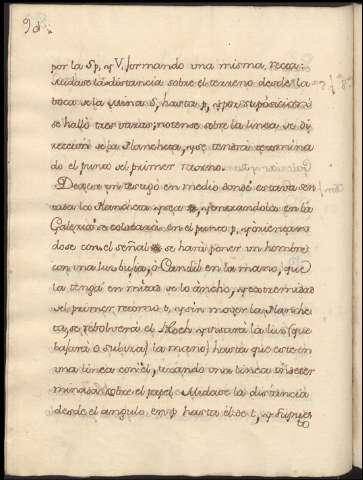 por la S p, y V. formando una misma recta:
Midase la distancia sobre el terreno desde la
boca de la Mina S, hasta p, y por suposicion
se halló tres varas; notense sobre la linea de di
reccion de la Plancheta, y se tendrá determina
do el punto del primer
Dexese un testigo en medio donde estava sen
tada la Plancheta y en la
Galeria se colocará en el punto p, y orientan
dose con el señal se hará poner un hombre
con una luz bujia, ò Candil en la mano, que
la tenga en mitad de lo ancho, y extremidad
del primer retorno t, y sin mover la Planche
ta, se rebolverá el y mirará la luz (que
bajará ò subirá) la mano) hasta que esté en
una linea con el, tirando una linea indeter
minada sobre el papel. Midase la distancia
desde el angulo en p hasta el de t, y supues
to